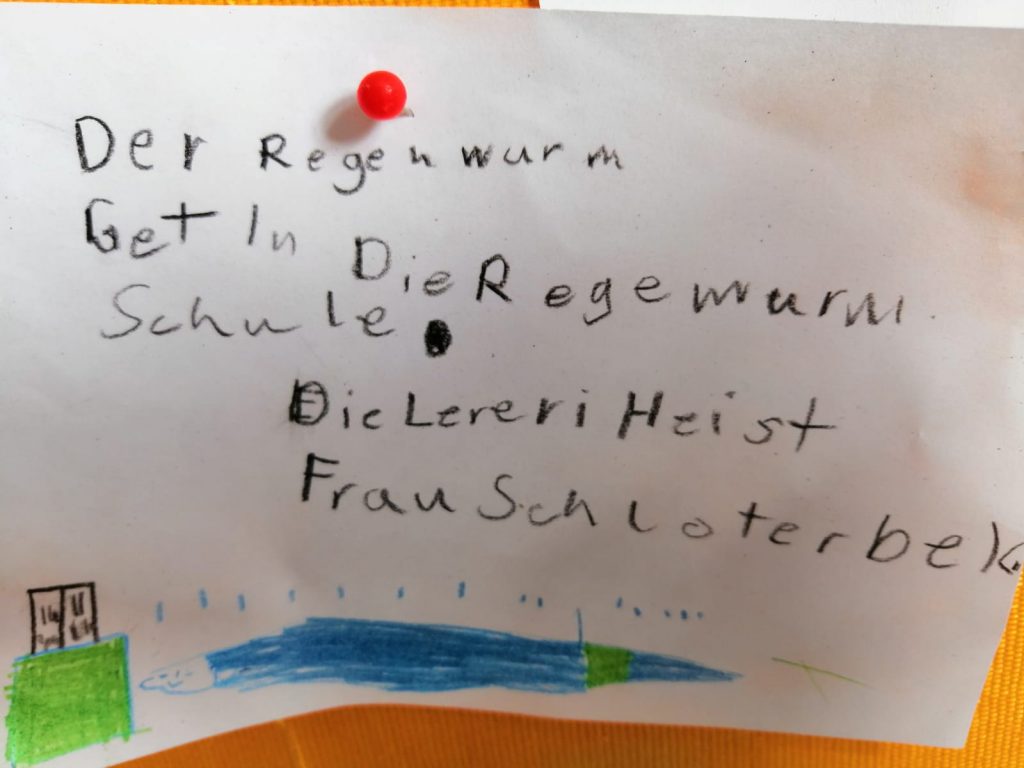 Der Regenwurm
Get In Die Regewurm
Schule.
Die Lereri Heist
Frau Schloterbek.